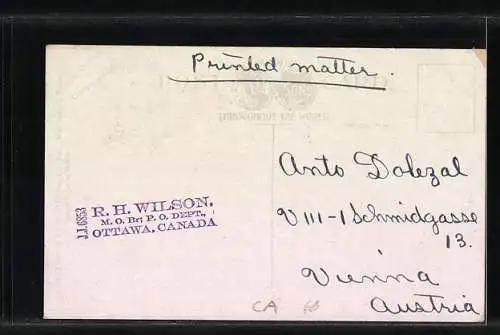 Printed matter.
Anto Dolezal
VIII-1 Schmidgasse
13.
Vienna
Austria
J.I.6353
R. H. WILSON.
M. O. Br: P. O. DEPT.,
OTTAWA, CANADA
CA